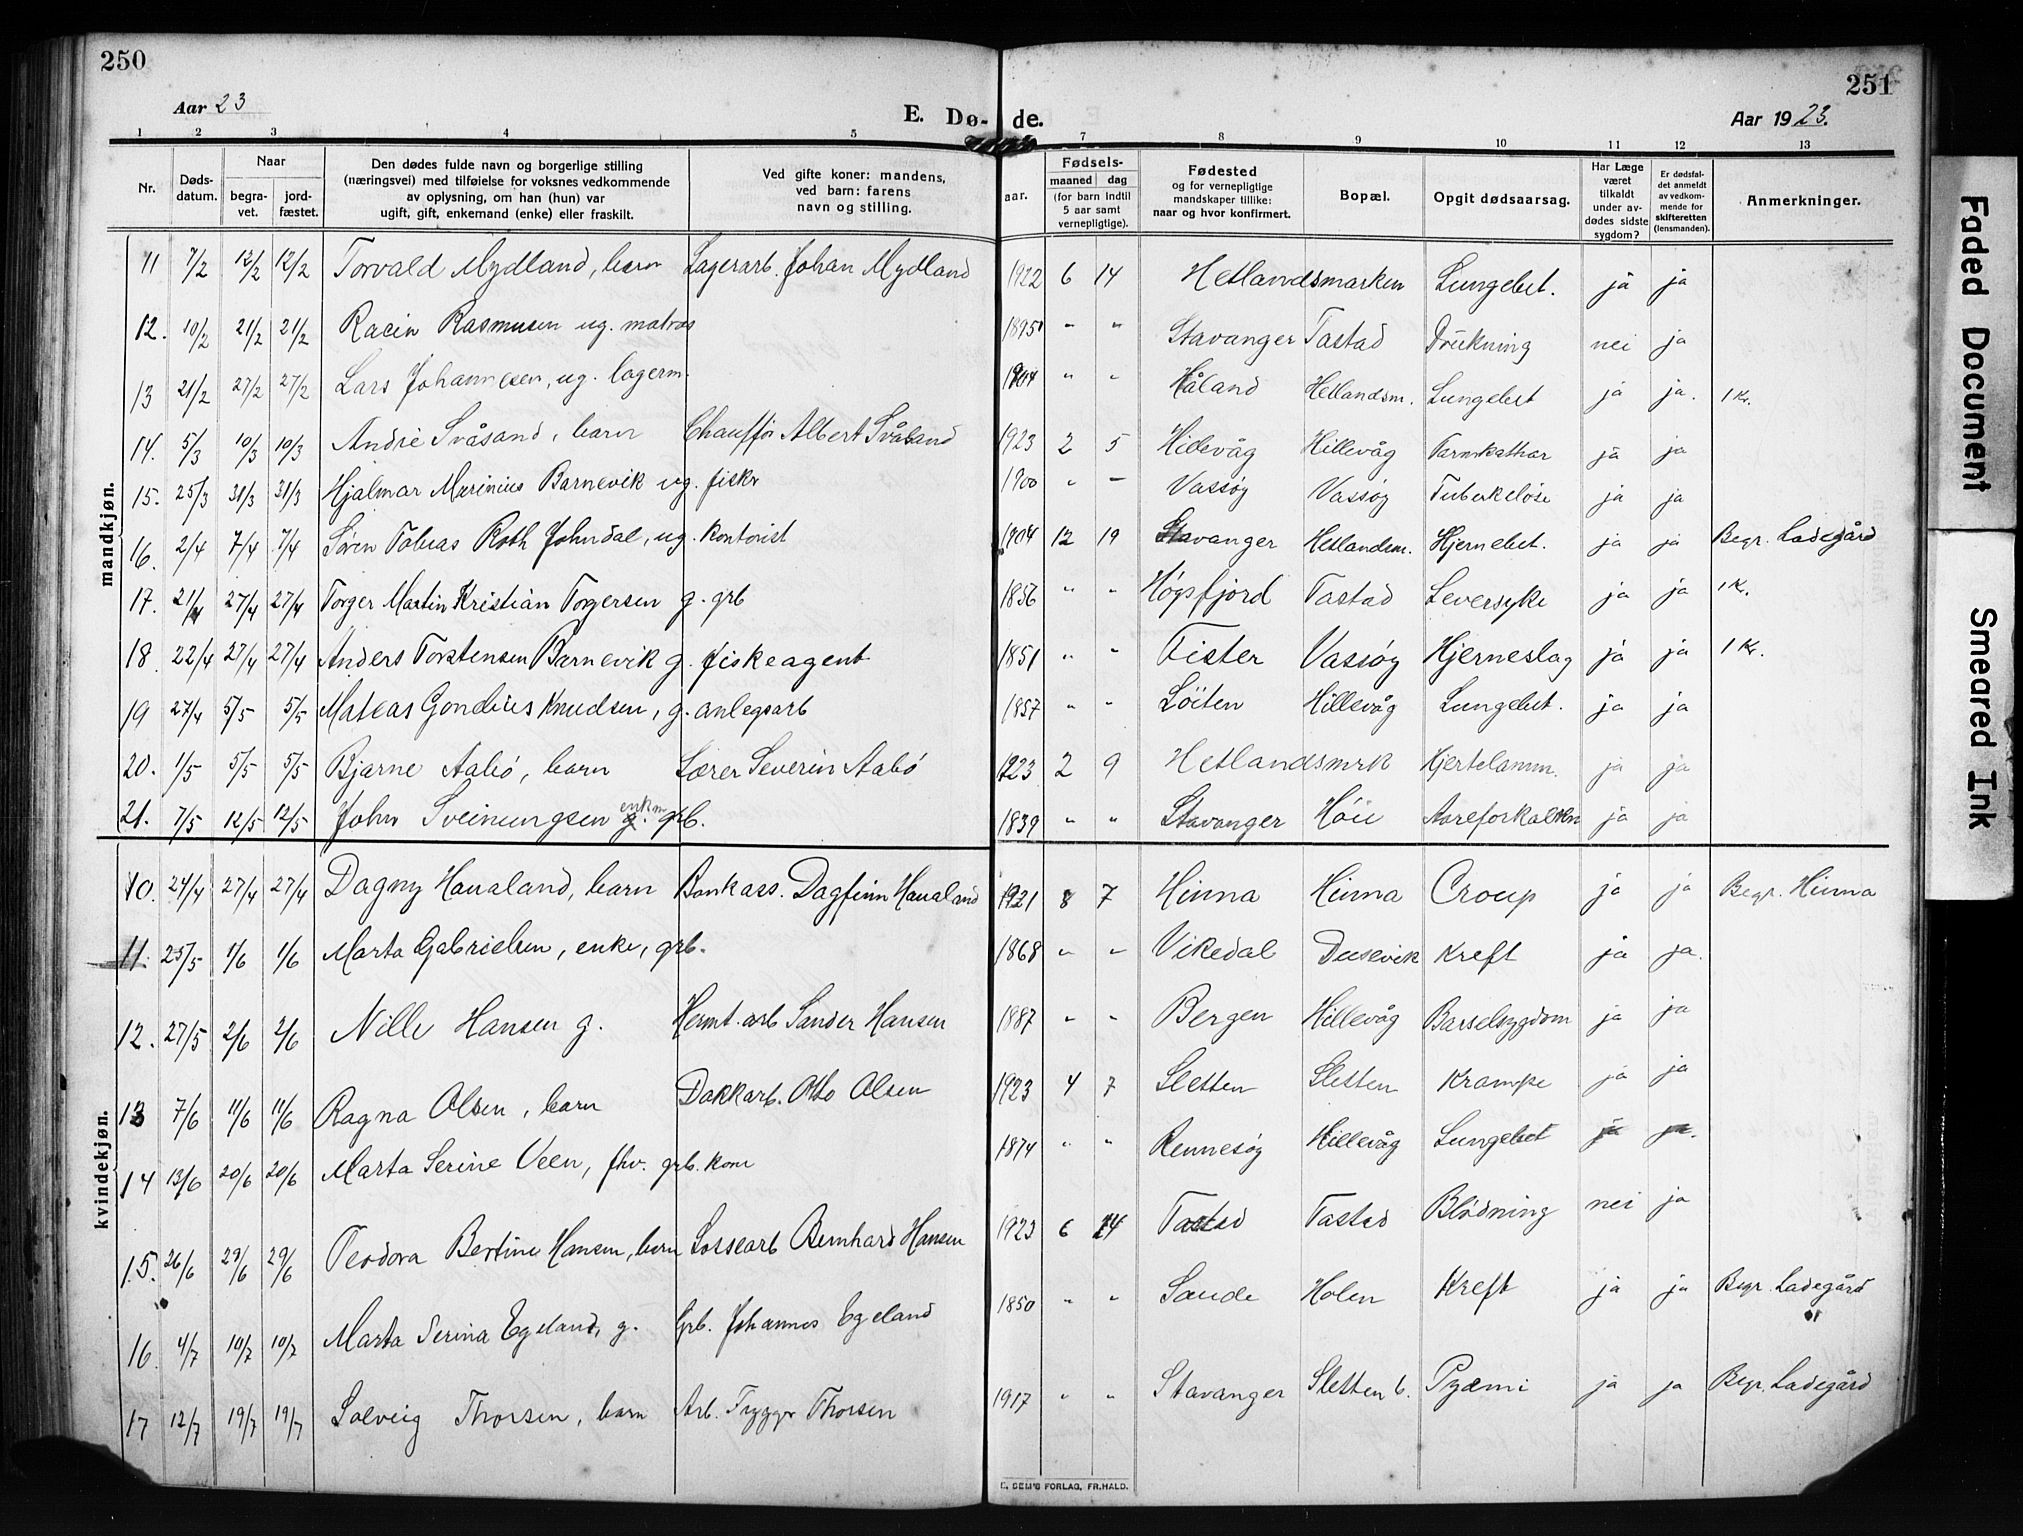 250
251
Aar 23
E. Dø- de.
Aar 1923.
1 2 3 4 5 7 8 9 10 11 12 13
Nr.
Døds-
datum.
Naar
begra-
vet.
jord-
fæstet.
Den dødes fulde navn og borgerlige stilling
(næringsvei) med tilføielse for voksnes vedkommende
av oplysning, om han (hun) var
ugift, gift, enkemand (enke) eller fraskilt.
Ved gifte koner: mandens,
ved barn: farens
navn og stilling.
aar.
Fødsels-
maaned dag
(for barn indtil
5 aar samt
vernepligtige).
Fødested
og for vernepligtige
mandskaper tillike:
naar og hvor konfirmert.
Bopæl.
Opgit dødsaarsag.
Har Læge
været
tilkaldt
under av-
dødes sidste
sygdom?
Er dødsfal-
det anmeldt
av vedkom-
mende for
skifteretten
(lensmanden).
Anmerkninger.
mandkjøn.
11 7/2 12/2 12/2 Torvald Mydland, barn Lagerarb. Johan Mydland 1922 6 14 Hetlandsmarken Lungebet. ja ja
12. 10/2 21/2 21/2 Racin Rasmusen ug. matros 1895 " " Stavanger Tastad Drukning nei ja
13 21/2 27/2 27/2 Lars Johannesen, ug. lagerm. 1904 " " Håland Hetlandsm. Lungebet ja ja. 1 Kr.
14. 5/3 10/3 10/3 Andre Svåsand, barn Chauffør Albert Svåsand 1923 2 5 Hillevåg Hillevåg Tarmkathar ja ja
15. 25/3 31/3 31/3 Hjalmar Marinius Barnevik ug. fisker 1900 " " Vassøy Vassøy Tuberkeløse ja ja
16. 2/4 7/4 7/4 Søren Tobias Roth Johndal, ug. kontorist 1904 12 19 Stavanger Hetlandsm. Hjernebet. ja ja Begr. Ladegård
17. 21/4 27/4 27/4 Torger Martin Kristian Torgersen g. grb 1856 " " Høgsfjord Tastad Leversyke ja ja 1 Kr.
18 22/4 27/4 27/4 Anders Torstensen Barnevik g. fiskeagent 1851 " " Fister Vassøy Hjerneslag ja ja 1 Kr.
19 27/4 5/5 5/5 Mateas Gondius Knudsen, g. anlegsarb 1857 " " Løiten Hillevåg Lungebet. ja ja
20. 1/5 5/5 5/5 Bjarne Aabø, barn Lærer Severin Aabø 1923 2 9 Hetlandsmrk Hjertelamm. ja ja
21. 7/5 12/5 12/5 John Sveinungsen g. enkm. grb. 1839 " " Stavanger Høie Aareforkalkn ja ja
kvindekjøn.
10. 24/4 27/4 27/4 Dagny Haualand, barn Bankass. Dagfinn Haualand 1921 8 7 Hinna Hinna Croup ja ja Begr. Hinna
11. 25/5 1/6 1/6 Marta Gabrielsen, enke, grb. 1868 " " Vikedal Dusevik Kreft ja ja.
12. 27/5 2/6 2/6 Nille Hansen g. Hermt. arb Sander Hansen 1887 " " Bergen Hillevåg Barselsygdom ja ja
13 7/6 11/6 11/6 Ragna Olsen, barn Dakkarb. Otto Olsen 1923 4 7 Sletten Sletten Krampe ja ja
14 13/6 20/6 20/6 Marta Serine Veen, fhv. grb. kone 1874 " " Rennesøy Hillevåg Lungebet ja ja.
15. 26/6 29/6 29/6 Teodora Bertine Hansen, barn Lossearb Bernhard Hansen 1923 6 24 Tastad Tastad Blødning nei ja
16 4/7 10/7 10/7 Marta Serina Egeland, g. Grb. Johannes Egeland 1850 " " Sande Holen Kreft ja ja Begr. Ladegård
17 12/7 19/7 19/7 Solveig Thorsen, barn Arb. Trygge Thorsen 1917 " " Stavanger Sletten b. Pyæmi ja ja Begr. Ladegård
E. SEM'S FORLAG, FR.HALD.
Faded Document
Smeared Ink